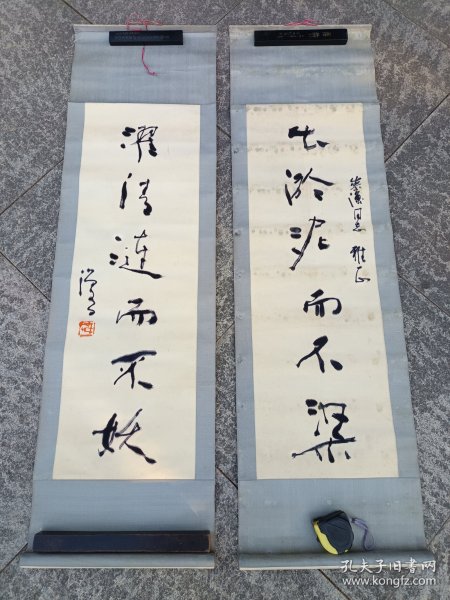 出淤泥而不染
同志 雅正
濯清涟而不妖
孔夫子旧书网
www.kongfz.com